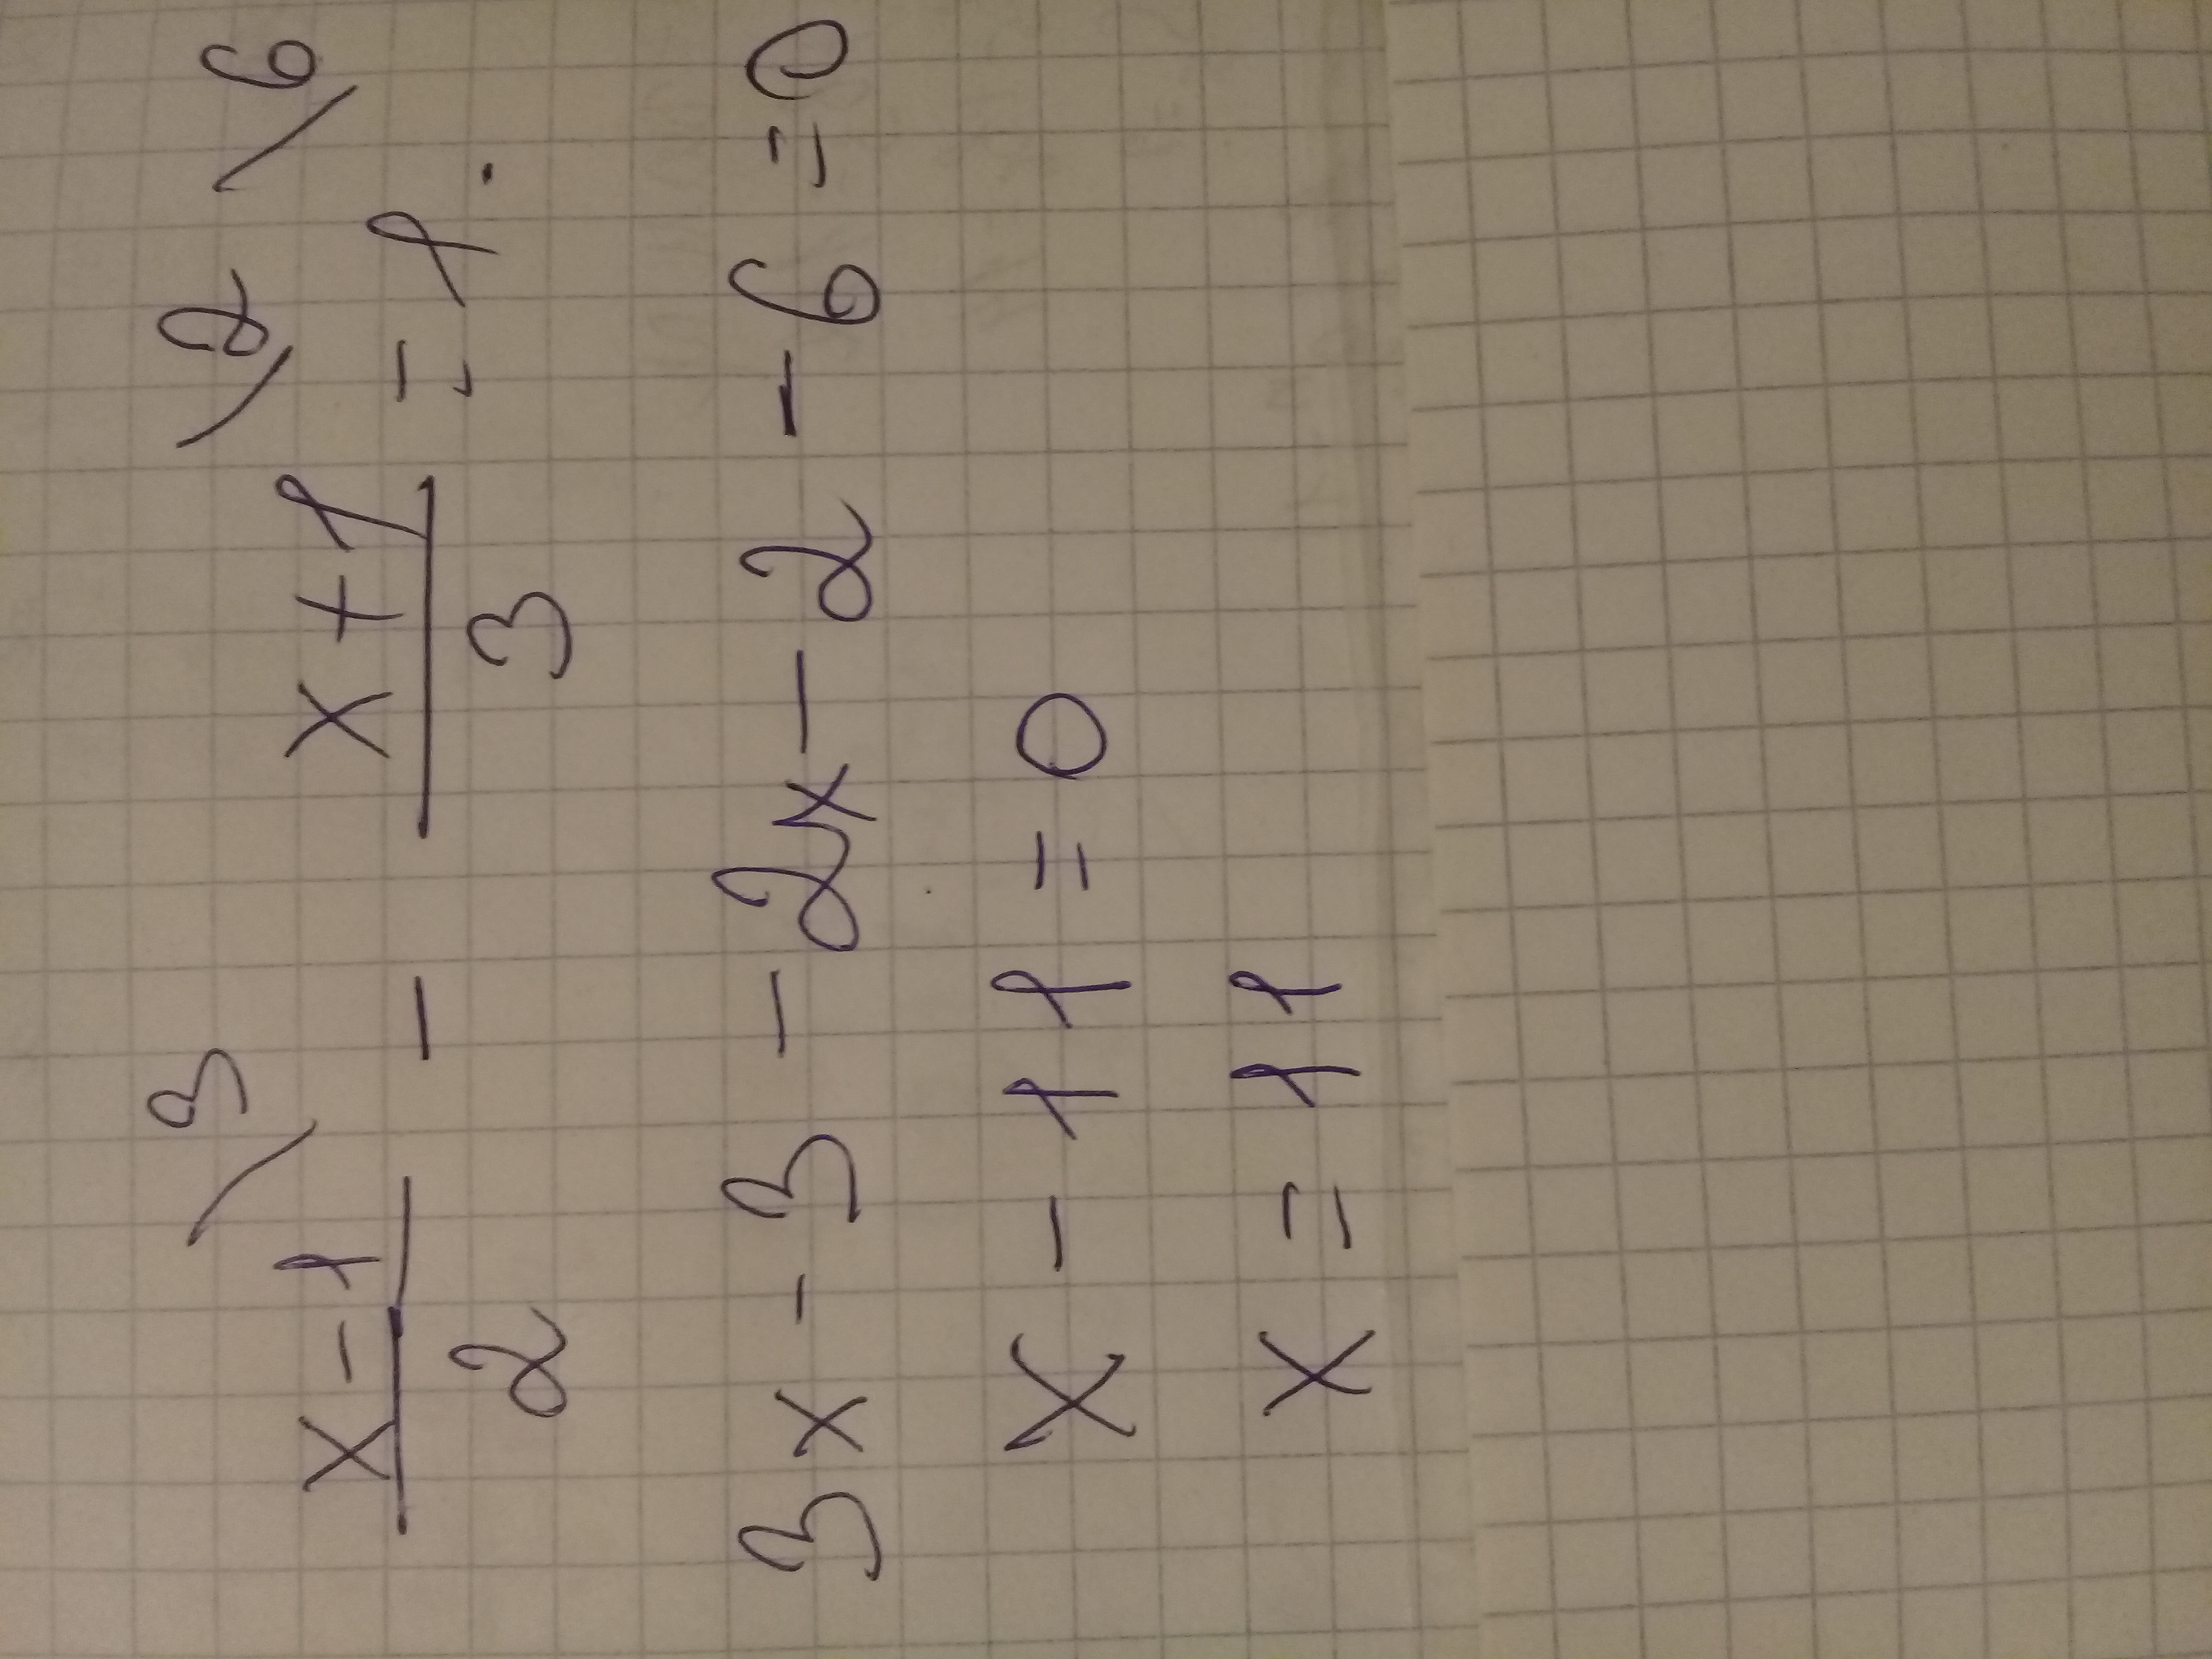 x-1 \3 - x+1 \2 = 1. \6
2 3
3x - 3 - 2x - 2 - 6 = 0
x - 11 = 0
x = 11